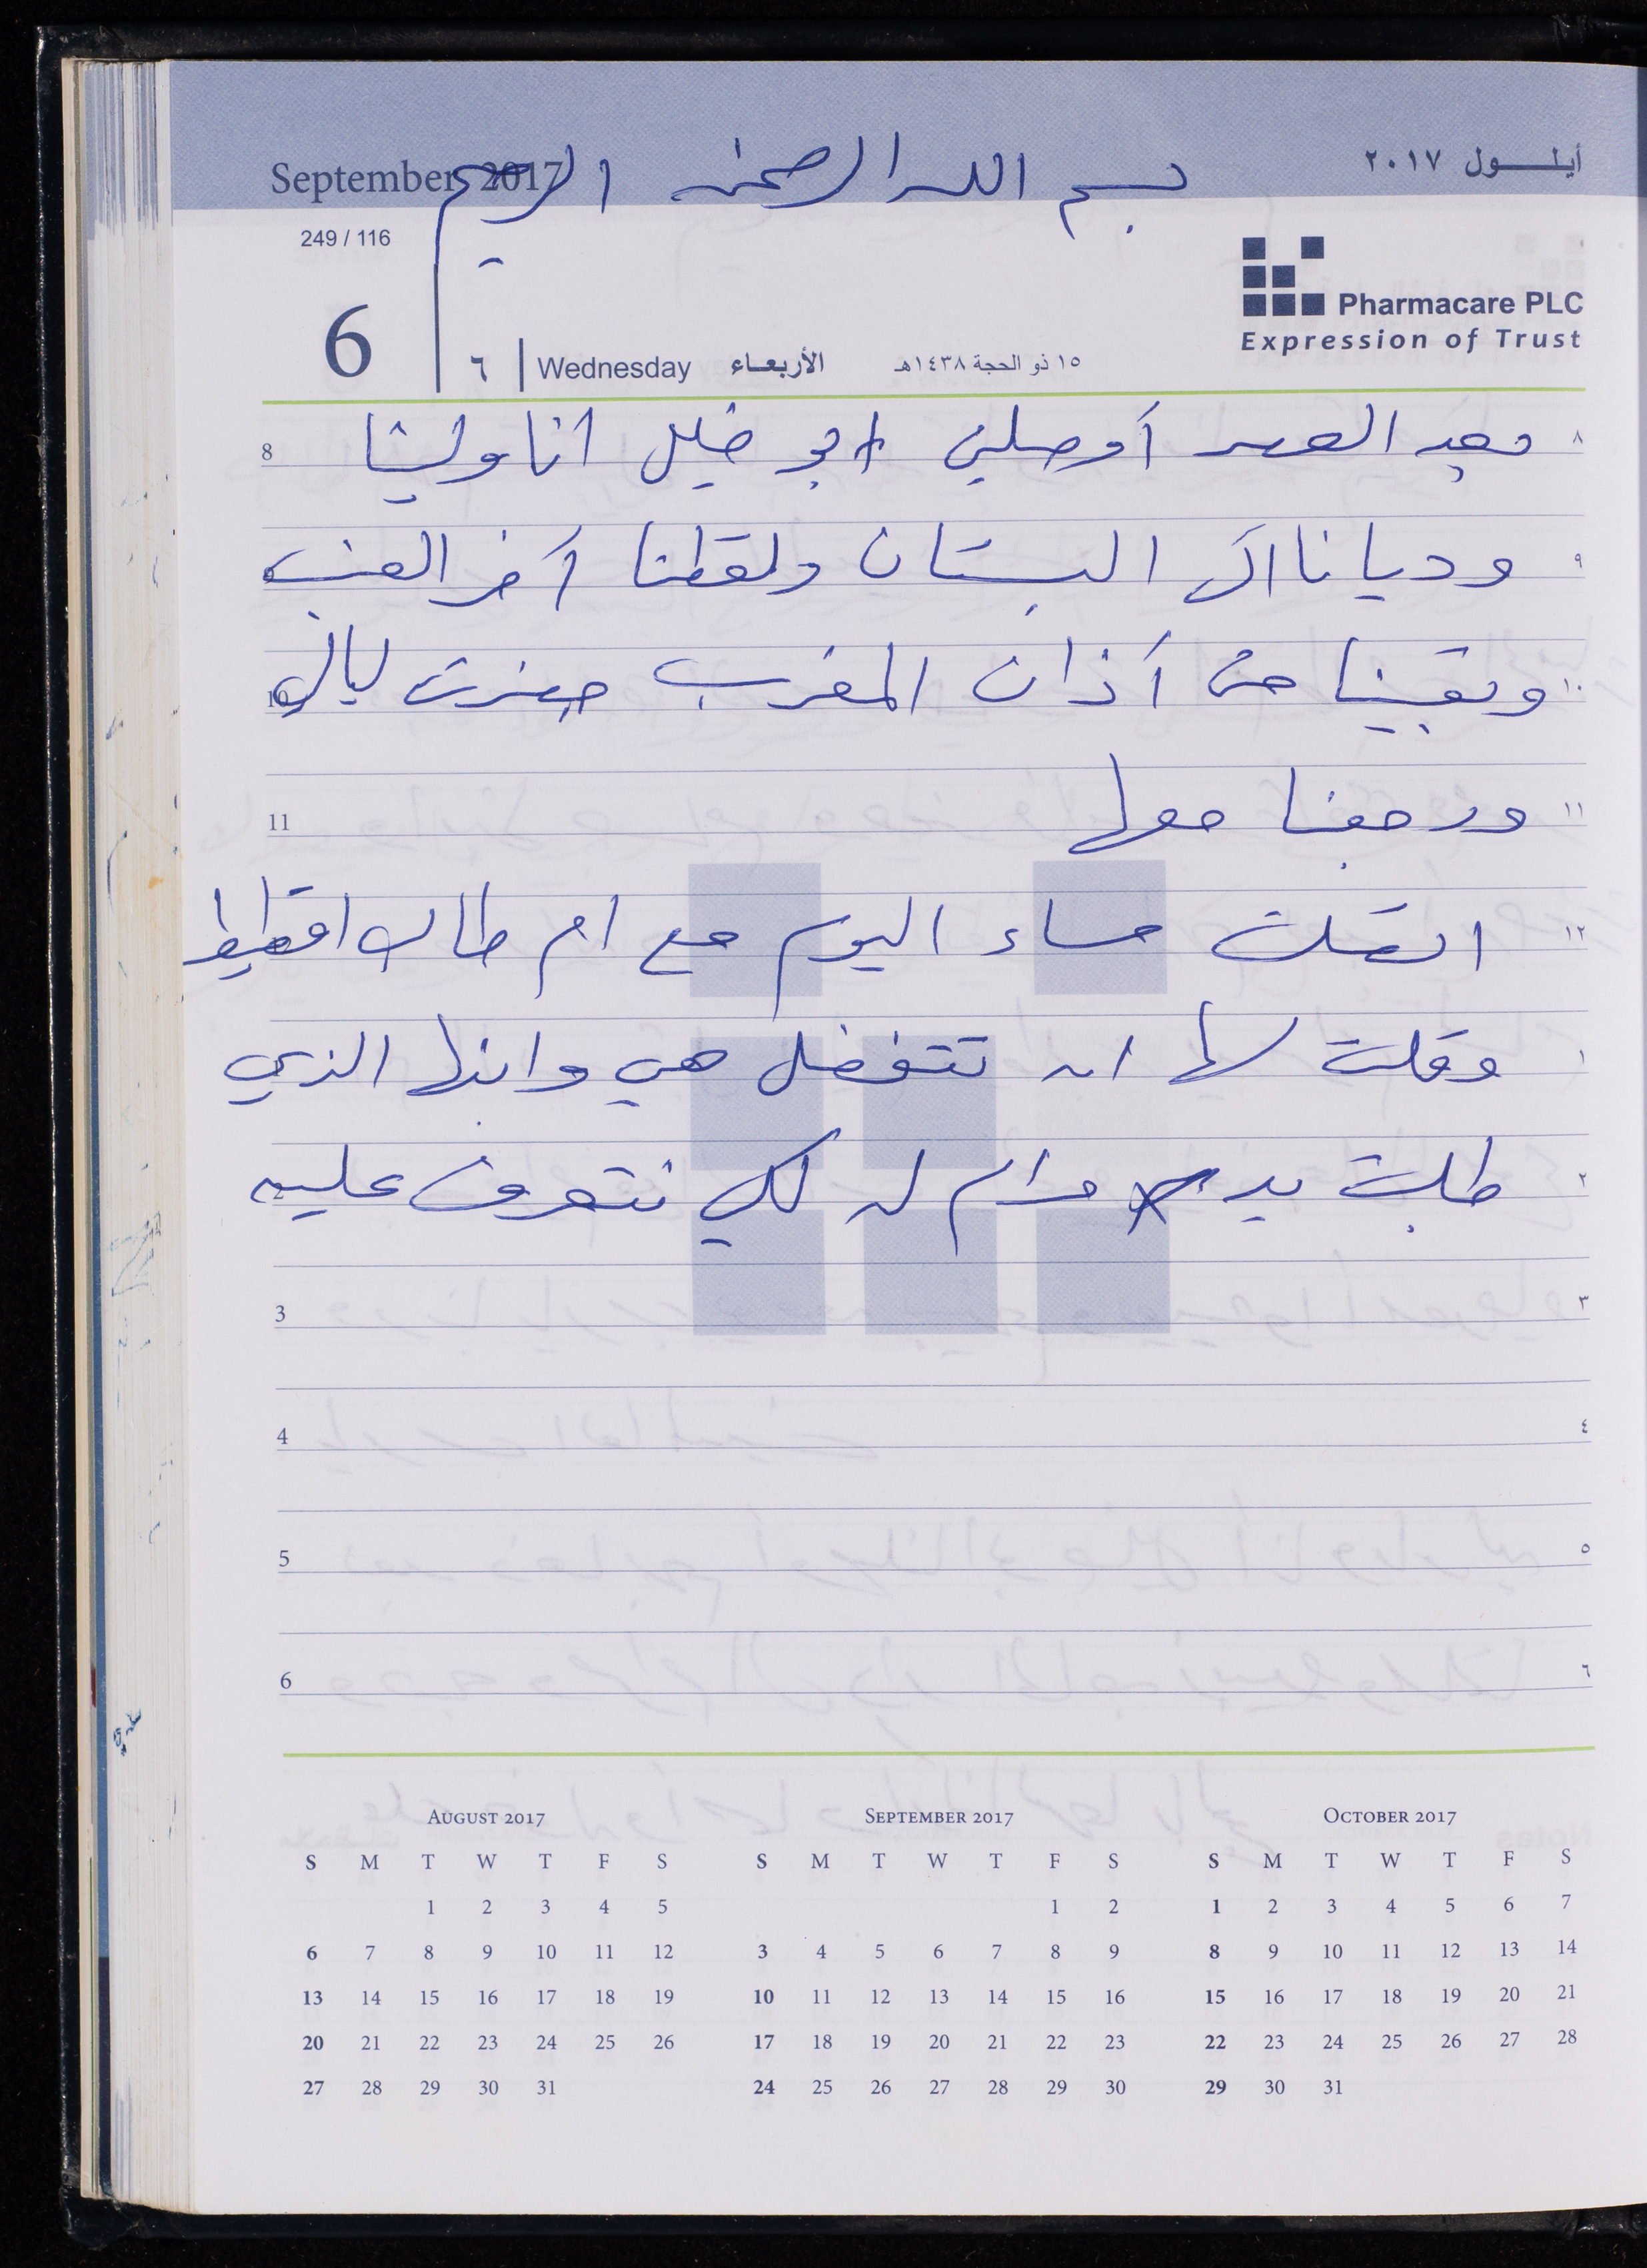 September 2017
أيلول ٢٠١٧
بسم الله الرحمن الرحيم
249 / 116
Pharmacare PLC
Expression of Trust
6 ٦ Wednesday الأربعاء ١٥ ذو الحجة ١٤٣٨هـ
8 بعد العصر أوصلني ابو خليل انا ولينا ٨
وديانا الى البستان ولقطنا آخر العنب ٩
10 وبقينا حتى آذان المغرب حضرت ليالي ١٠
11 ورجعنا معها ١١
اتصلت مساء اليوم مع ام طالب اقطيط ١٢
وقلت لها ان تتفضل هي وابنها الذي ١
طلبت يد مرام له لكي نتعرف عليه ٢
3 ٣
4 ٤
5 ٥
6 ٦
August 2017
S M T W T F S
1 2 3 4 5
6 7 8 9 10 11 12
13 14 15 16 17 18 19
20 21 22 23 24 25 26
27 28 29 30 31
September 2017
S M T W T F S
1 2
3 4 5 6 7 8 9
10 11 12 13 14 15 16
17 18 19 20 21 22 23
24 25 26 27 28 29 30
October 2017
S M T W T F S
1 2 3 4 5 6 7
8 9 10 11 12 13 14
15 16 17 18 19 20 21
22 23 24 25 26 27 28
29 30 31